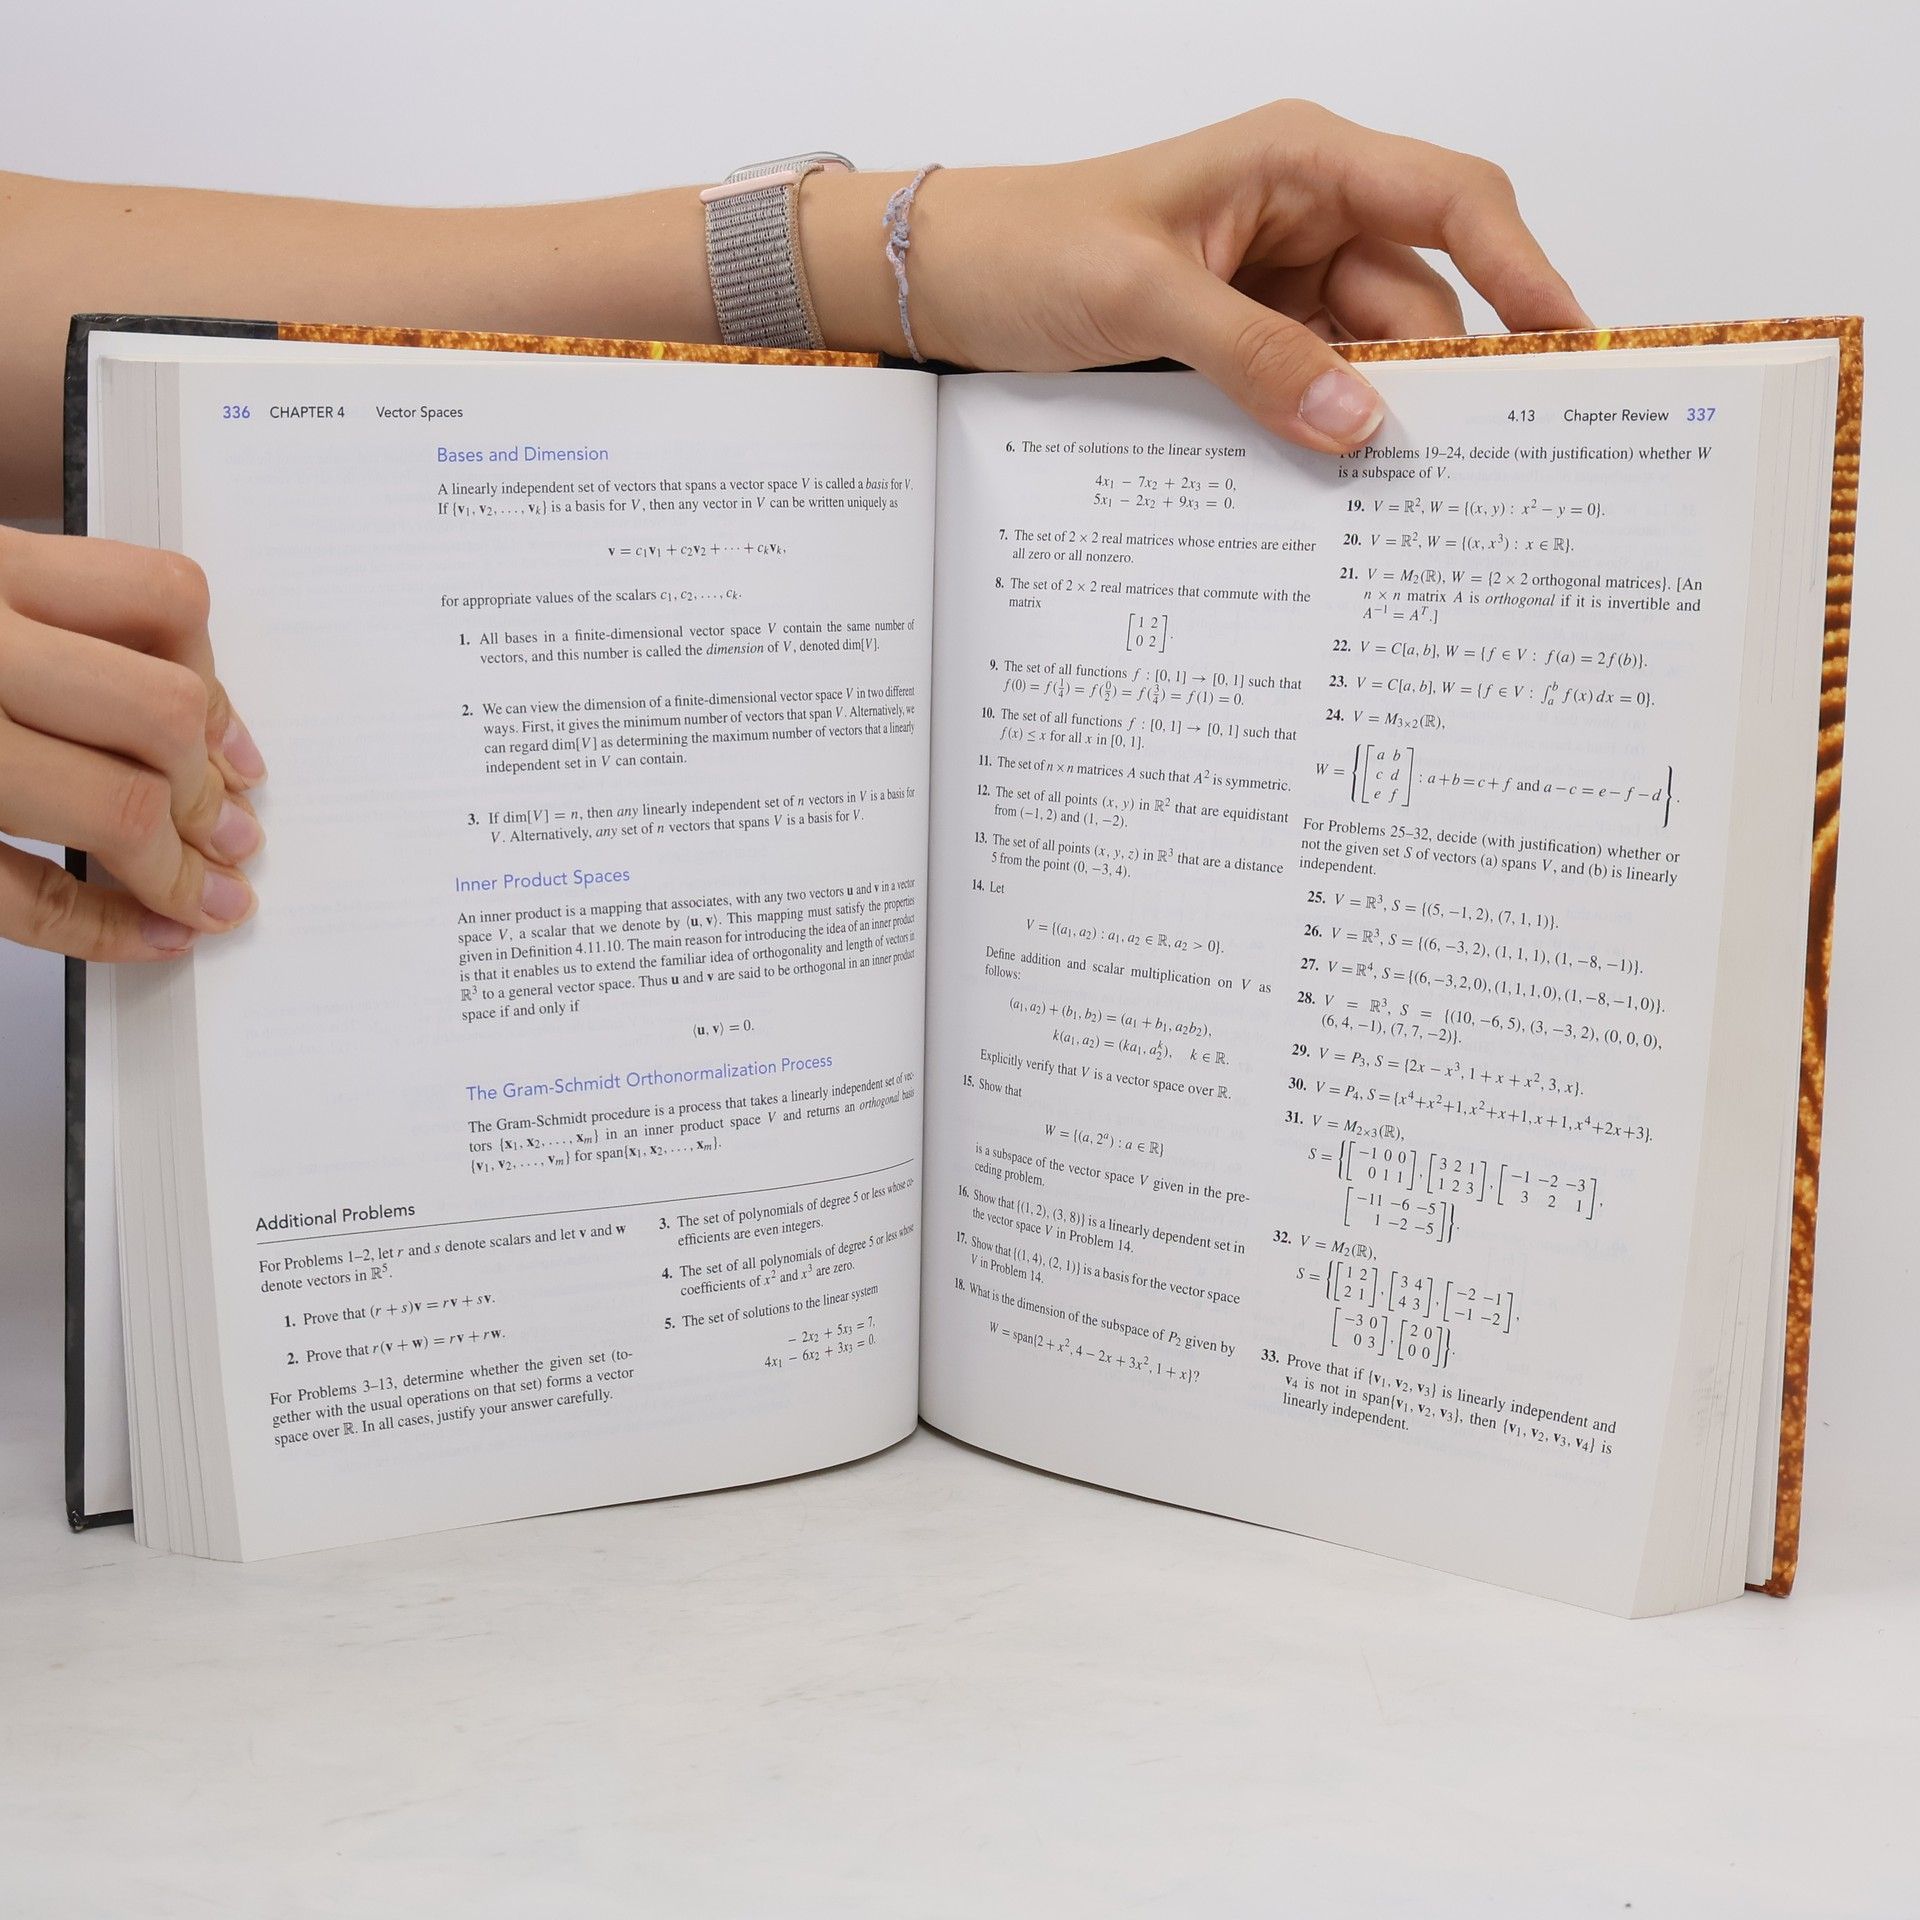 336 CHAPTER 4 Vector Spaces
Bases and Dimension
A linearly independent set of vectors that spans a vector space V is called a basis for V.
If {v₁, v₂, . . . , vₖ} is a basis for V, then any vector in V can be written uniquely as
v = c₁v₁ + c₂v₂ + · · · + cₖvₖ,
for appropriate values of the scalars c₁, c₂, . . . , cₖ.
1. All bases in a finite-dimensional vector space V contain the same number of
vectors, and this number is called the dimension of V, denoted dim[V].
2. We can view the dimension of a finite-dimensional vector space V in two different
ways. First, it gives the minimum number of vectors that span V. Alternatively, we
can regard dim[V] as determining the maximum number of vectors that a linearly
independent set in V can contain.
3. If dim[V] = n, then any linearly independent set of n vectors in V is a basis for
V. Alternatively, any set of n vectors that spans V is a basis for V.
Inner Product Spaces
An inner product is a mapping that associates, with any two vectors u and v in a vector
space V, a scalar that we denote by ⟨u, v⟩. This mapping must satisfy the properties
given in Definition 4.11.10. The main reason for introducing the idea of an inner product
is that it enables us to extend the familiar idea of orthogonality and length of vectors in
ℝ³ to a general vector space. Thus u and v are said to be orthogonal in an inner product
space if and only if
⟨u, v⟩ = 0.
The Gram-Schmidt Orthonormalization Process
The Gram-Schmidt procedure is a process that takes a linearly independent set of vec-
tors {x₁, x₂, . . . , xₘ} in an inner product space V and returns an orthogonal basis
{v₁, v₂, . . . , vₘ} for span{x₁, x₂, . . . , xₘ}.
Additional Problems
For Problems 1–2, let r and s denote scalars and let v and w
denote vectors in ℝ⁵.
1. Prove that (r + s)v = rv + sv.
2. Prove that r(v + w) = rv + rw.
For Problems 3–13, determine whether the given set (to-
gether with the usual operations on that set) forms a vector
space over ℝ. In all cases, justify your answer carefully.
3. The set of polynomials of degree 5 or less whose co-
efficients are even integers.
4. The set of all polynomials of degree 5 or less whose
coefficients of x² and x³ are zero.
5. The set of solutions to the linear system
− 2x₂ + 5x₃ = 7,
4x₁ − 6x₂ + 3x₃ = 0.
4.13 Chapter Review 337
6. The set of solutions to the linear system
4x₁ − 7x₂ + 2x₃ = 0,
5x₁ − 2x₂ + 9x₃ = 0.
7. The set of 2 × 2 real matrices whose entries are either
all zero or all nonzero.
8. The set of 2 × 2 real matrices that commute with the
matrix
[1 2
0 2].
9. The set of all functions f : [0, 1] → [0, 1] such that
f(0) = f(1/4) = f(0/2) = f(3/4) = f(1) = 0.
10. The set of all functions f : [0, 1] → [0, 1] such that
f(x) ≤ x for all x in [0, 1].
11. The set of n × n matrices A such that A² is symmetric.
12. The set of all points (x, y) in ℝ² that are equidistant
from (−1, 2) and (1, −2).
13. The set of all points (x, y, z) in ℝ³ that are a distance
5 from the point (0, −3, 4).
14. Let
V = {(a₁, a₂) : a₁, a₂ ∈ ℝ, a₂ > 0}.
Define addition and scalar multiplication on V as
follows:
(a₁, a₂) + (b₁, b₂) = (a₁ + b₁, a₂b₂),
k(a₁, a₂) = (ka₁, a₂ᵏ), k ∈ ℝ.
Explicitly verify that V is a vector space over ℝ.
15. Show that
W = {(a, 2ᵃ) : a ∈ ℝ}
is a subspace of the vector space V given in the pre-
ceding problem.
16. Show that {(1, 2), (3, 8)} is a linearly dependent set in
the vector space V in Problem 14.
17. Show that {(1, 4), (2, 1)} is a basis for the vector space
V in Problem 14.
18. What is the dimension of the subspace of P₂ given by
W = span{2 + x², 4 − 2x + 3x², 1 + x}?
For Problems 19–24, decide (with justification) whether W
is a subspace of V.
19. V = ℝ², W = {(x, y) : x² − y = 0}.
20. V = ℝ², W = {(x, x³) : x ∈ ℝ}.
21. V = M₂(ℝ), W = {2 × 2 orthogonal matrices}. [An
n × n matrix A is orthogonal if it is invertible and
A⁻¹ = Aᵀ.]
22. V = C[a, b], W = {f ∈ V : f(a) = 2f(b)}.
23. V = C[a, b], W = {f ∈ V : ∫ₐᵇ f(x) dx = 0}.
24. V = M₃ₓ₂(ℝ),
W = {[a b
c d
e f] : a+b=c+f and a−c=e−f−d}.
For Problems 25–32, decide (with justification) whether or
not the given set S of vectors (a) spans V, and (b) is linearly
independent.
25. V = ℝ³, S = {(5, −1, 2), (7, 1, 1)}.
26. V = ℝ³, S = {(6, −3, 2), (1, 1, 1), (1, −8, −1)}.
27. V = ℝ⁴, S = {(6, −3, 2, 0), (1, 1, 1, 0), (1, −8, −1, 0)}.
28. V = ℝ³, S = {(10, −6, 5), (3, −3, 2), (0, 0, 0),
(6, 4, −1), (7, 7, −2)}.
29. V = P₃, S = {2x − x³, 1 + x + x², 3, x}.
30. V = P₄, S = {x⁴+x²+1, x²+x+1, x+1, x⁴+2x+3}.
31. V = M₂ₓ₃(ℝ),
S = {[−1 0 0
0 1 1], [3 2 1
1 2 3], [−1 −2 −3
3 2 1],
[−11 −6 −5
1 −2 −5]}.
32. V = M₂(ℝ),
S = {[1 2
2 1], [3 4
4 3], [−2 −1
−1 −2],
[−3 0
0 3], [2 0
0 0]}.
33. Prove that if {v₁, v₂, v₃} is linearly independent and
v₄ is not in span{v₁, v₂, v₃}, then {v₁, v₂, v₃, v₄} is
linearly independent.